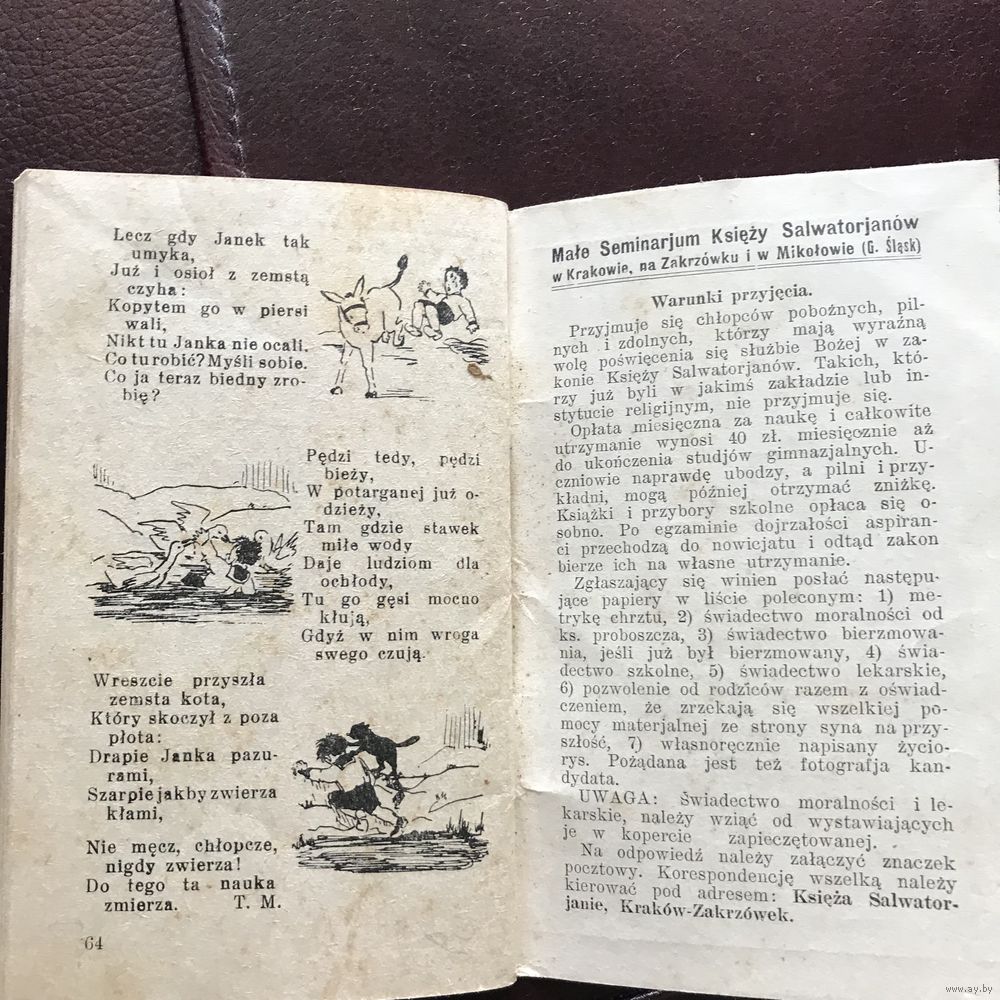 Lecz gdy Janek tak
umyka,
Już i osioł z zemstą
czyha:
Kopytem go w piersi
wali,
Nikt tu Janka nie ocali.
Co tu robić? Myśli sobie.
Co ja teraz biedny zro-
bię?
Pędzi tedy, pędzi
bieży,
W potarganej już o-
dzieży,
Tam gdzie stawek
miłe wody
Daje ludziom dla
ochłody,
Tu go gęsi mocno
kłują,
Gdyż w nim wroga
swego czują.
Wreszcie przyszła
zemsta kota,
Który skoczył z poza
płota:
Drapie Janka pazu-
rami,
Szarpie jakby zwierza
kłami,
Nie męcz, chłopcze,
nigdy zwierza!
Do tego ta nauka
zmierza. T. M.
64
Małe Seminarjum Księży Salwatorjanów
w Krakowie, na Zakrzówku i w Mikołowie (G. Śląsk)
Warunki przyjęcia.
Przyjmuje się chłopców pobożnych, pil-
nych i zdolnych, którzy mają wyraźną
wolę poświęcenia się służbie Bożej w za-
konie Księży Salwatorjanów. Takich, któ-
rzy już byli w jakimś zakładzie lub in-
stytucie religijnym, nie przyjmuje się.
Opłata miesięczna za naukę i całkowite
utrzymanie wynosi 40 zł. miesięcznie aż
do ukończenia studjów gimnazjalnych. U-
czniowie naprawdę ubodzy, a pilni i przy-
kładni, mogą później otrzymać zniżkę.
Książki i przybory szkolne opłaca się o-
sobno. Po egzaminie dojrzałości aspiran-
ci przechodzą do nowicjatu i odtąd zakon
bierze ich na własne utrzymanie.
Zgłaszający się winien posłać następu-
jące papiery w liście poleconym: 1) me-
trykę chrztu, 2) świadectwo moralności od
ks. proboszcza, 3) świadectwo bierzmowa-
nia, jeśli już był bierzmowany, 4) świa-
dectwo szkolne, 5) świadectwo lekarskie,
6) pozwolenie od rodziców razem z oświad-
czeniem, że zrzekają się wszelkiej po-
mocy materjalnej ze strony syna na przy-
szłość, 7) własnoręcznie napisany życio-
rys. Pożądana jest też fotografja kan-
dydata.
UWAGA: Świadectwo moralności i le-
karskie, należy wziąć od wystawiających
je w kopercie zapieczętowanej.
Na odpowiedź należy załączyć znaczek
pocztowy. Korespondencję wszelką należy
kierować pod adresem: Księża Salwator-
janie, Kraków-Zakrzówek.
www.ay.by